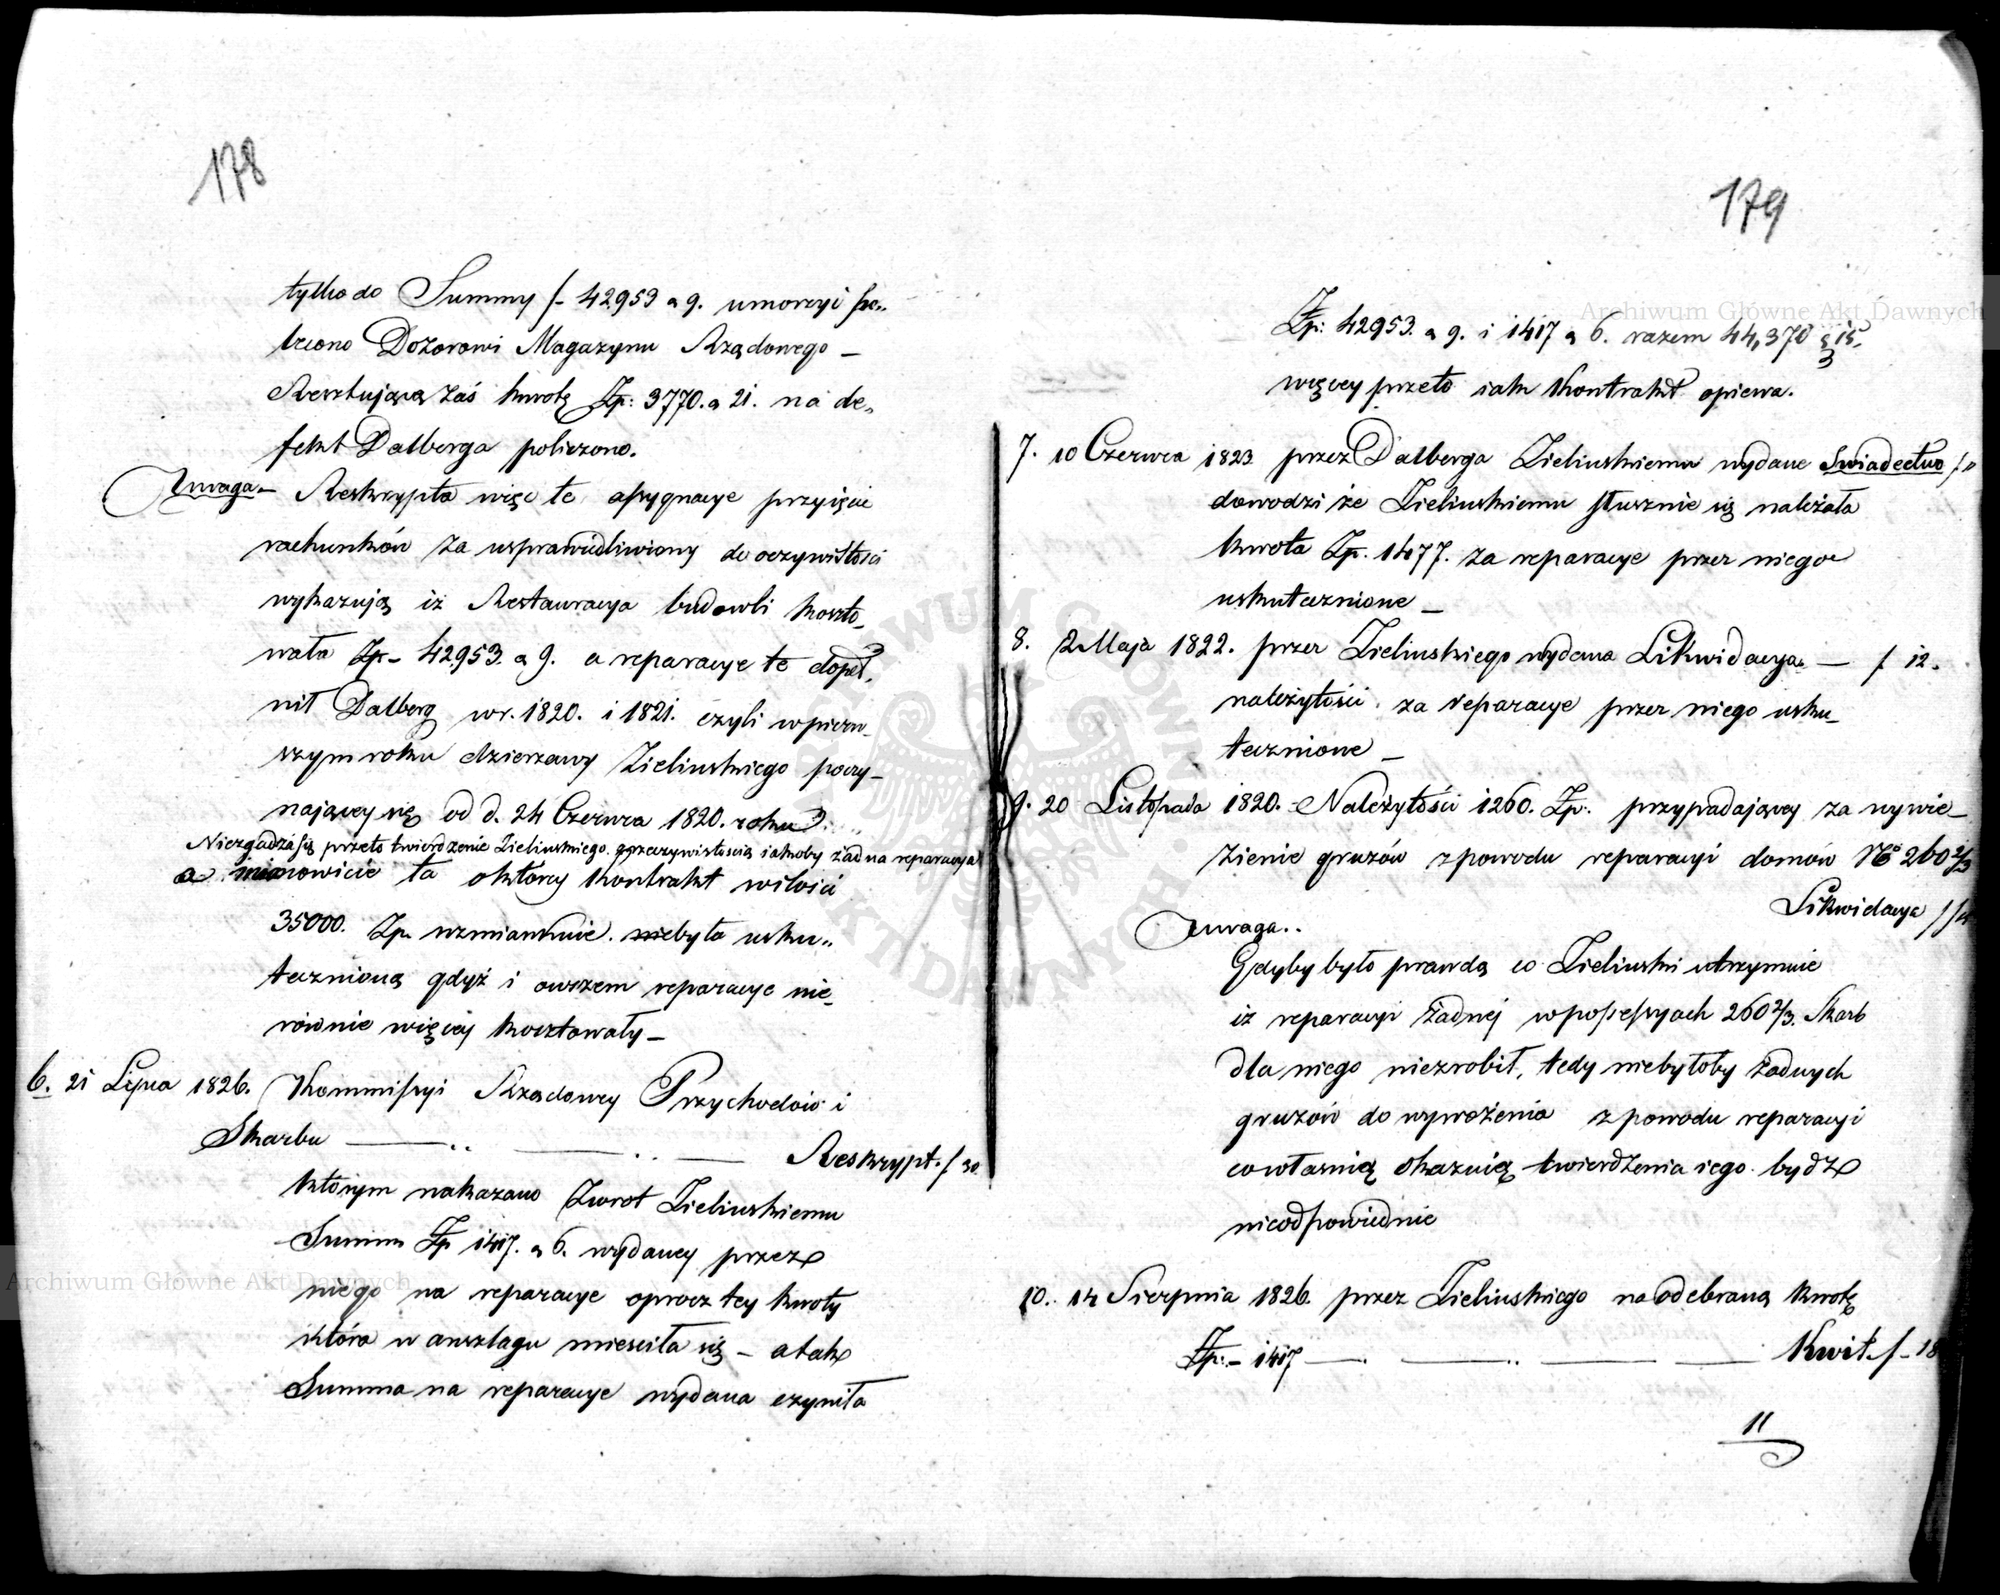 178
tylko do Summy f– 42953 a 9. umorzyi po„
lecono Dozorowi Magazynu Rządowego –
Resztującą zaś kwotę Zp: 3770. a 21. na de„
fekt Dalberga policzono.
Uwaga – Reskrypta więc te assygnacye przyięcie
rachunków za usprawiedliwiony do oczywistości
wykazują iż Restauracya budowli koszto_
wała Zp– 42953. a 9. a reparacye te dopeł_
nił Dalberg w r. 1820. i 1821. czyli w pierw_
szym roku dzierzawy Zielinskiego poczy_
naiącey się od d. 24 Czerwca 1820. roku.
Niezgadza się przeto twierdzenie Zielinskiego z rzeczywistoscią iakoby żadna reparacya
a mianowicie ta o ktorey Kontrakt w ilości
35000. Zp. wzmiankuie. niebyła usku„
teczniona gdyż i owszem reparacye nie_
równie więcey kosztowały –
6. 21 Lipca 1826. Kommissyi Rządowey Przychodów i
Skarbu —— .. —— .. —— Reskrypt. f 30.
którym nakazano Zwrot Zielinskiemu
Summy Zp 1417. a 6. wydaney przez
niego na reparacye oprocz tey kwoty
która w anszlagu miesciła się – a tak
Summa na reparacye wydana czyniła
179
Zp: 42953. a 9. i 1417 a 6. razem 44,370 a 15.
więcey przeto iak Kontrakt opiewa.
7. 10 Czerwca 1823 przez Dalberga Zielinskiemu wydane Swiadectwo f
dowodzi że Zielinskiemu słusznie się należała
kwota Zp. 1477. za reparacye przez niego
uskutecznione –
8. 2 Maja 1822. przez Zielinskiego wydana Likwidacya – f 12.
należytości za reparacye przez niego usku_
tecznione –
9. 20 Listopada 1820. – Należytości 1260. Zp: przypadającey za wywie_
zienie gruzów z powodu reparacyi domów No 260 2/3
Likwidacya f
Uwaga..
Gdyby było prawdą co Zielinski utrzymuie
iż reparacyi żadnéj w possessyach 260 2/3. Skarb
dla niego niezrobił, tedy niebyłoby żadnych
gruzów do wywożenia z powodu reparacyi
co własnie okazuie twierdzenia iego bydz
nieodpowiednie
10. 14 Sierpnia 1826. przez Zielinskiego na odebraną kwotę
Zp: – 1417 —— . —— .. —— —— Kwit. f – 18
11